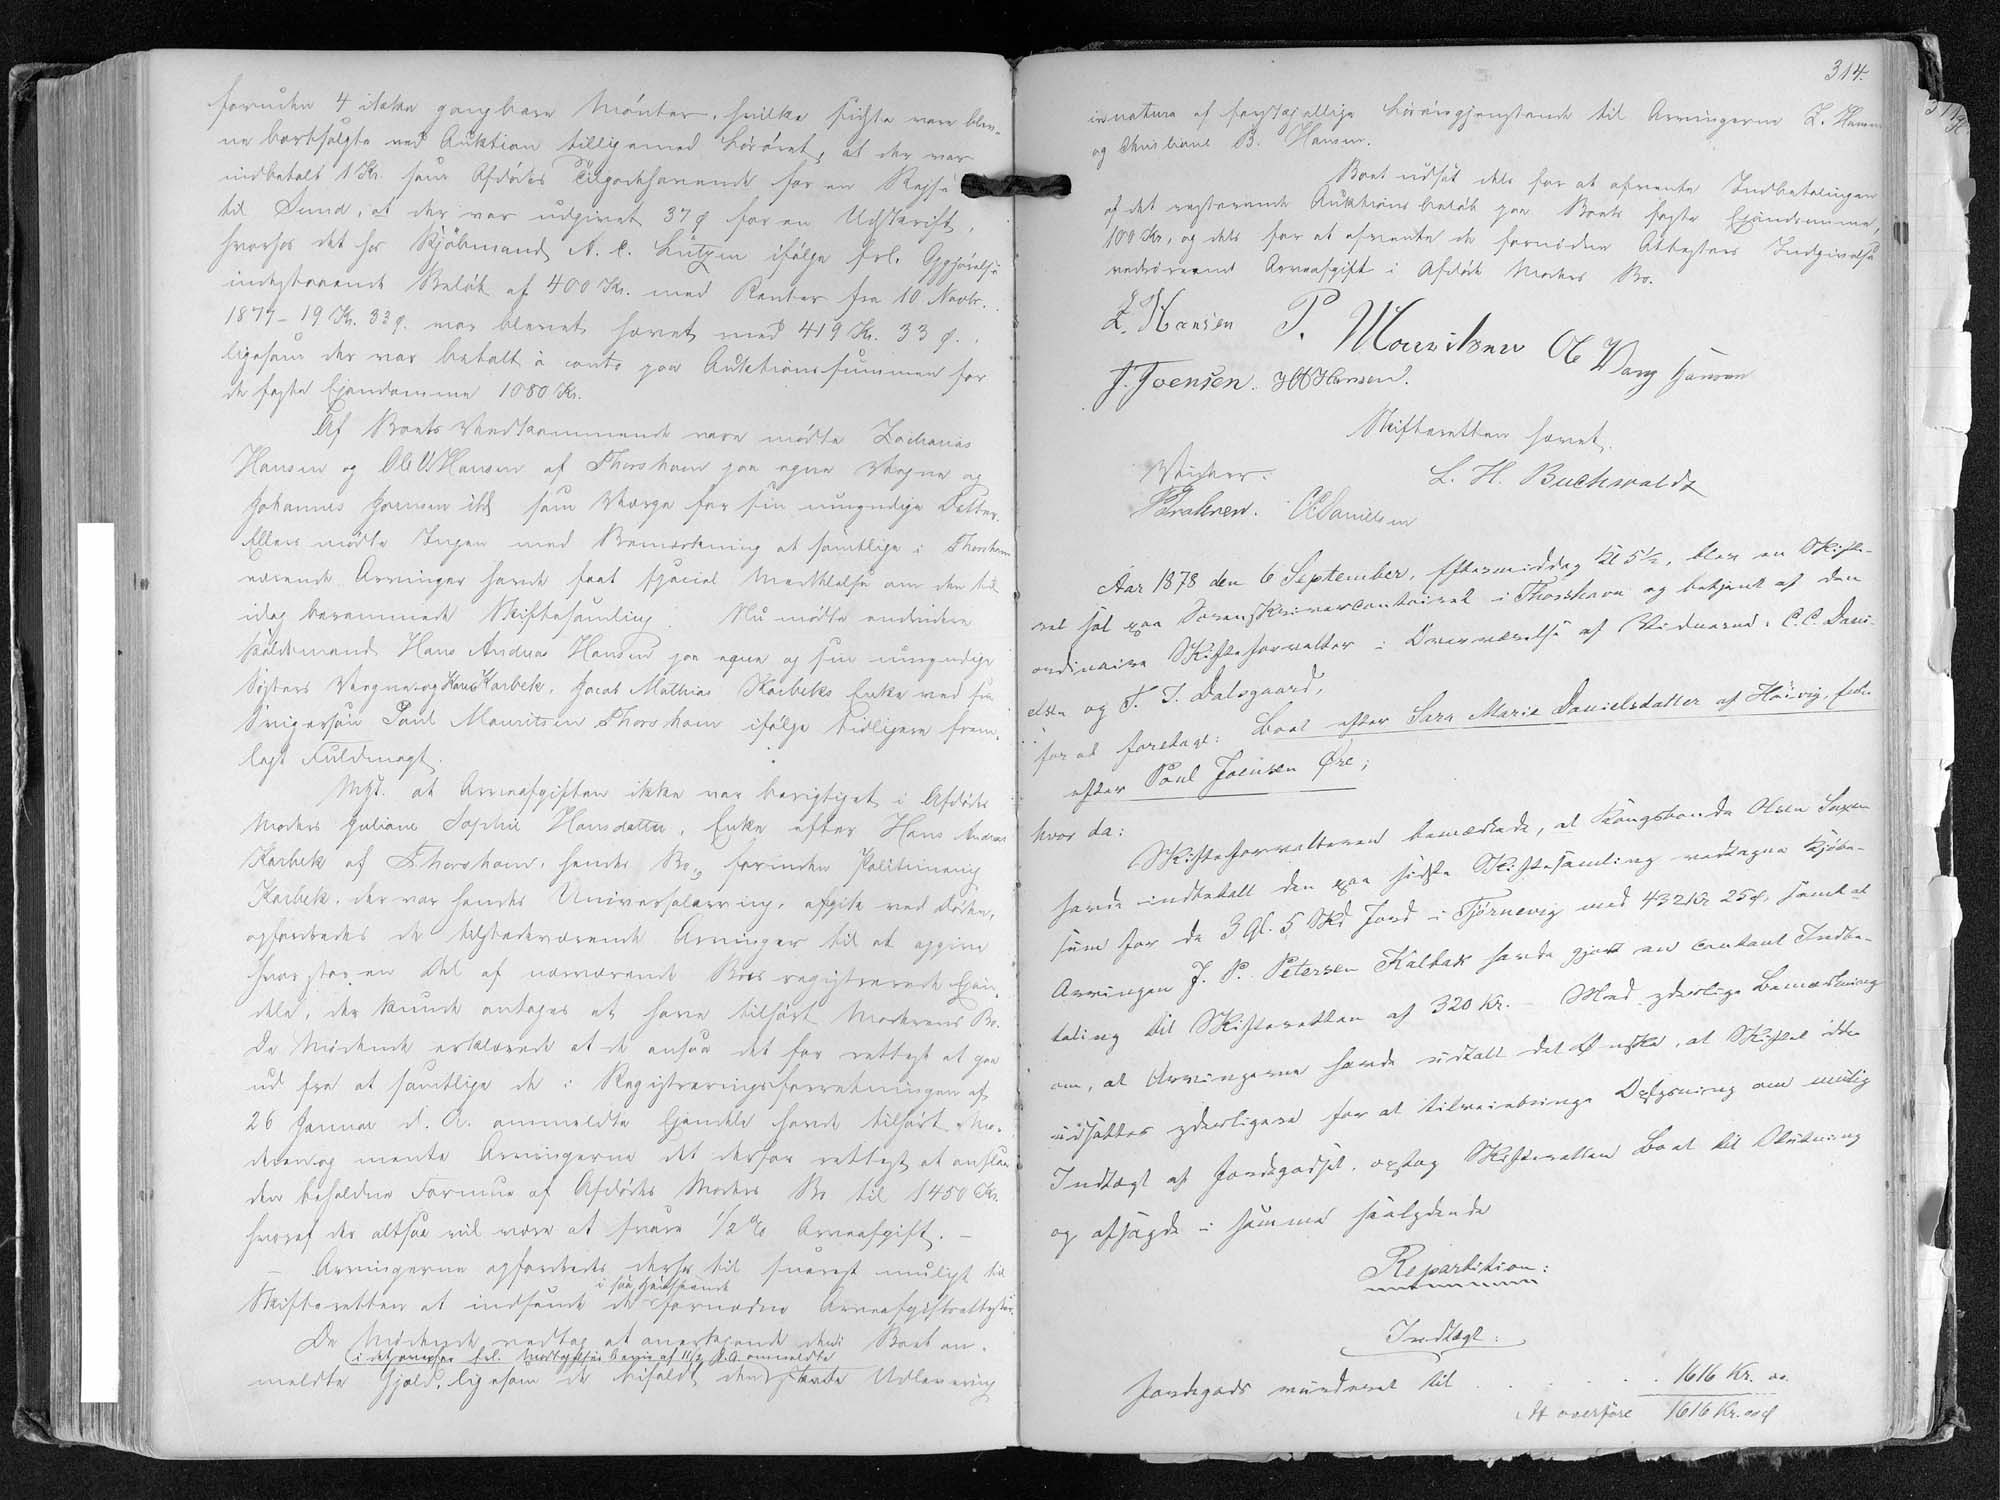 foruden 4 ikke gangbare Mönter, hvilke sidste vare blev-
ne bortsolgte ved Auktion tilligemed Lösöret, at der var
indbetalt 1 Kr. som Afdödes Tilgodehavende for en Rejse
til Sund, at der var udgivet 37 ø for en Udskrift,
hvorhos det hos Kjöbmand A. C. Lützen ifölge frl. Opgjörelse
indestaaende Belöb af 400 Kr. med Renter fra 10 Novbr.
1877 - 19 Kr. 33 ø. var blevet hævet med 419 Kr. 33 ø.,
ligesom der var betalt à conto paa Auktionssummen for
de faste Ejendomme 1080 Kr.
Af Boets Vedkommende vare mödte Zacharias
Hansen og Ole V Hansen af Thorshavn paa egne Vegne og
Johannes Joensen ibd som Værge for sin umyndige Datter.
Ellers mödte Ingen med Bemærkning at samtlige i Thorshavn
værende Arvinger havde faaet special Meddelelse om den til
idag berammede Skiftesamling. Nu mödte endvidere
Hans Andreas Hansen paa egne og sin umyndige
Søsters Vegne og Hans Karbek, Jacob Mathias Karbeks Enke ved sin
Svigersön Poul Mouritsen Thorshavn ifölge tidligere frem-
lagt Fuldmagt.
at Arveafgiften ikke var berigtiget i Afdödes
Moders Juliane Sophie Hansdatter, Enke efter Hans Andreas
Karbek af Thorshavn, hendes Bo, forinden
Karbek, der var hendes Universalarving, afgik ved Döden,
opfordredes de tilstedeværende Arvinger til at opgive
hvor stor en Del af nærværende Boes registrerede Ejen-
dele, der kunde antages at have tilhört Moderens Bo.
De Mödende erklærede at de ansaa det for rettest at gaa
ud fra at samtlige de i Registreringsforretningen af
26 Januar d. A. anmeldte Ejendele havde tilhört Mo-
deren og mente Arvingerne det derfor rettest at anslaa
den beholdne Formue af Afdödes Moders Bo til 1450 Kr.
hvoraf der altsaa vil være at svare 1/2 % Arveafgift. -
Arvingerne opfordredes derhos til snarest muligt til
i saa Henseende
Skifteretten at indsende de fornødne Arveafgiftsattester.
De Mödende vedtog at anerkjende den i Boet an-
frl. af 11/2 d. A. anmeldte
meldte Gjæld, ligesom de bifaldt den skete Udlevering
314.
in natura af forskjellige Lösöregjenstande til Arvingerne Z. Hansen
og Christiane B. Hansen.
Boet udsat dels for at afvente Indbetalingen
af det resterende Auktionsbeløb paa Boets faste Ejendomme,
100 Kr, og dels for at afvente de fornödne Attesters Indgivelse
vedrörende Arveafgift i Afdöde Moders Bo.
Z. Hansen P. Mouritsen Ole Vang Hansen
J. Joensen. H A Hansen.
Skifteretten hævet.
L. H. Buchwaldt
Vidner:
CC Danielsen
Aar 1878 den 6 September, Eftermiddag Kl 5½, blev en Skifte-
ret sat paa Sorenskrivercontoiret i Thorshavn og betjent af den
ordinaire Skifteforvalter i Overværelse af Vidnerne: C. C. Dani-
elsen og T. I. Dalsgaard,
for at foretage: Boet efter Sara Marie Danielsdatter af Hoivig, Enke
efter Poul Joensen Øre;
hvor da:
Skifteforvalteren bemærkede, at Kongsbonde Olsen Saxen
havde indbetalt den paa sidste Skiftesamling vedtagne Kjöbe-
sum for de 3 Gl. 5 Skd Jord i Tjörnevig med 432 Kr 25 ø, samt at
Arvingen J. P. Petersen Kalbak havde gjort en contant Indbe-
taling til Skifteretten af 320 Kr. - Med yderlige Bemærkning
om, at Arvingerne havde udtalt det Ønske, at Skiftet ikke
udsattes yderligere for at tilveiebringe Oplysning om mulig
Indtægt af Jordegodset, optog Skifteretten Boet til Slutning
og afsagde i samme saalydende
Repartition:
Indtægt:
Jordegods vurderet til . . . . . 1616 Kr. oo
At overføre 1616 Kr. oo ø